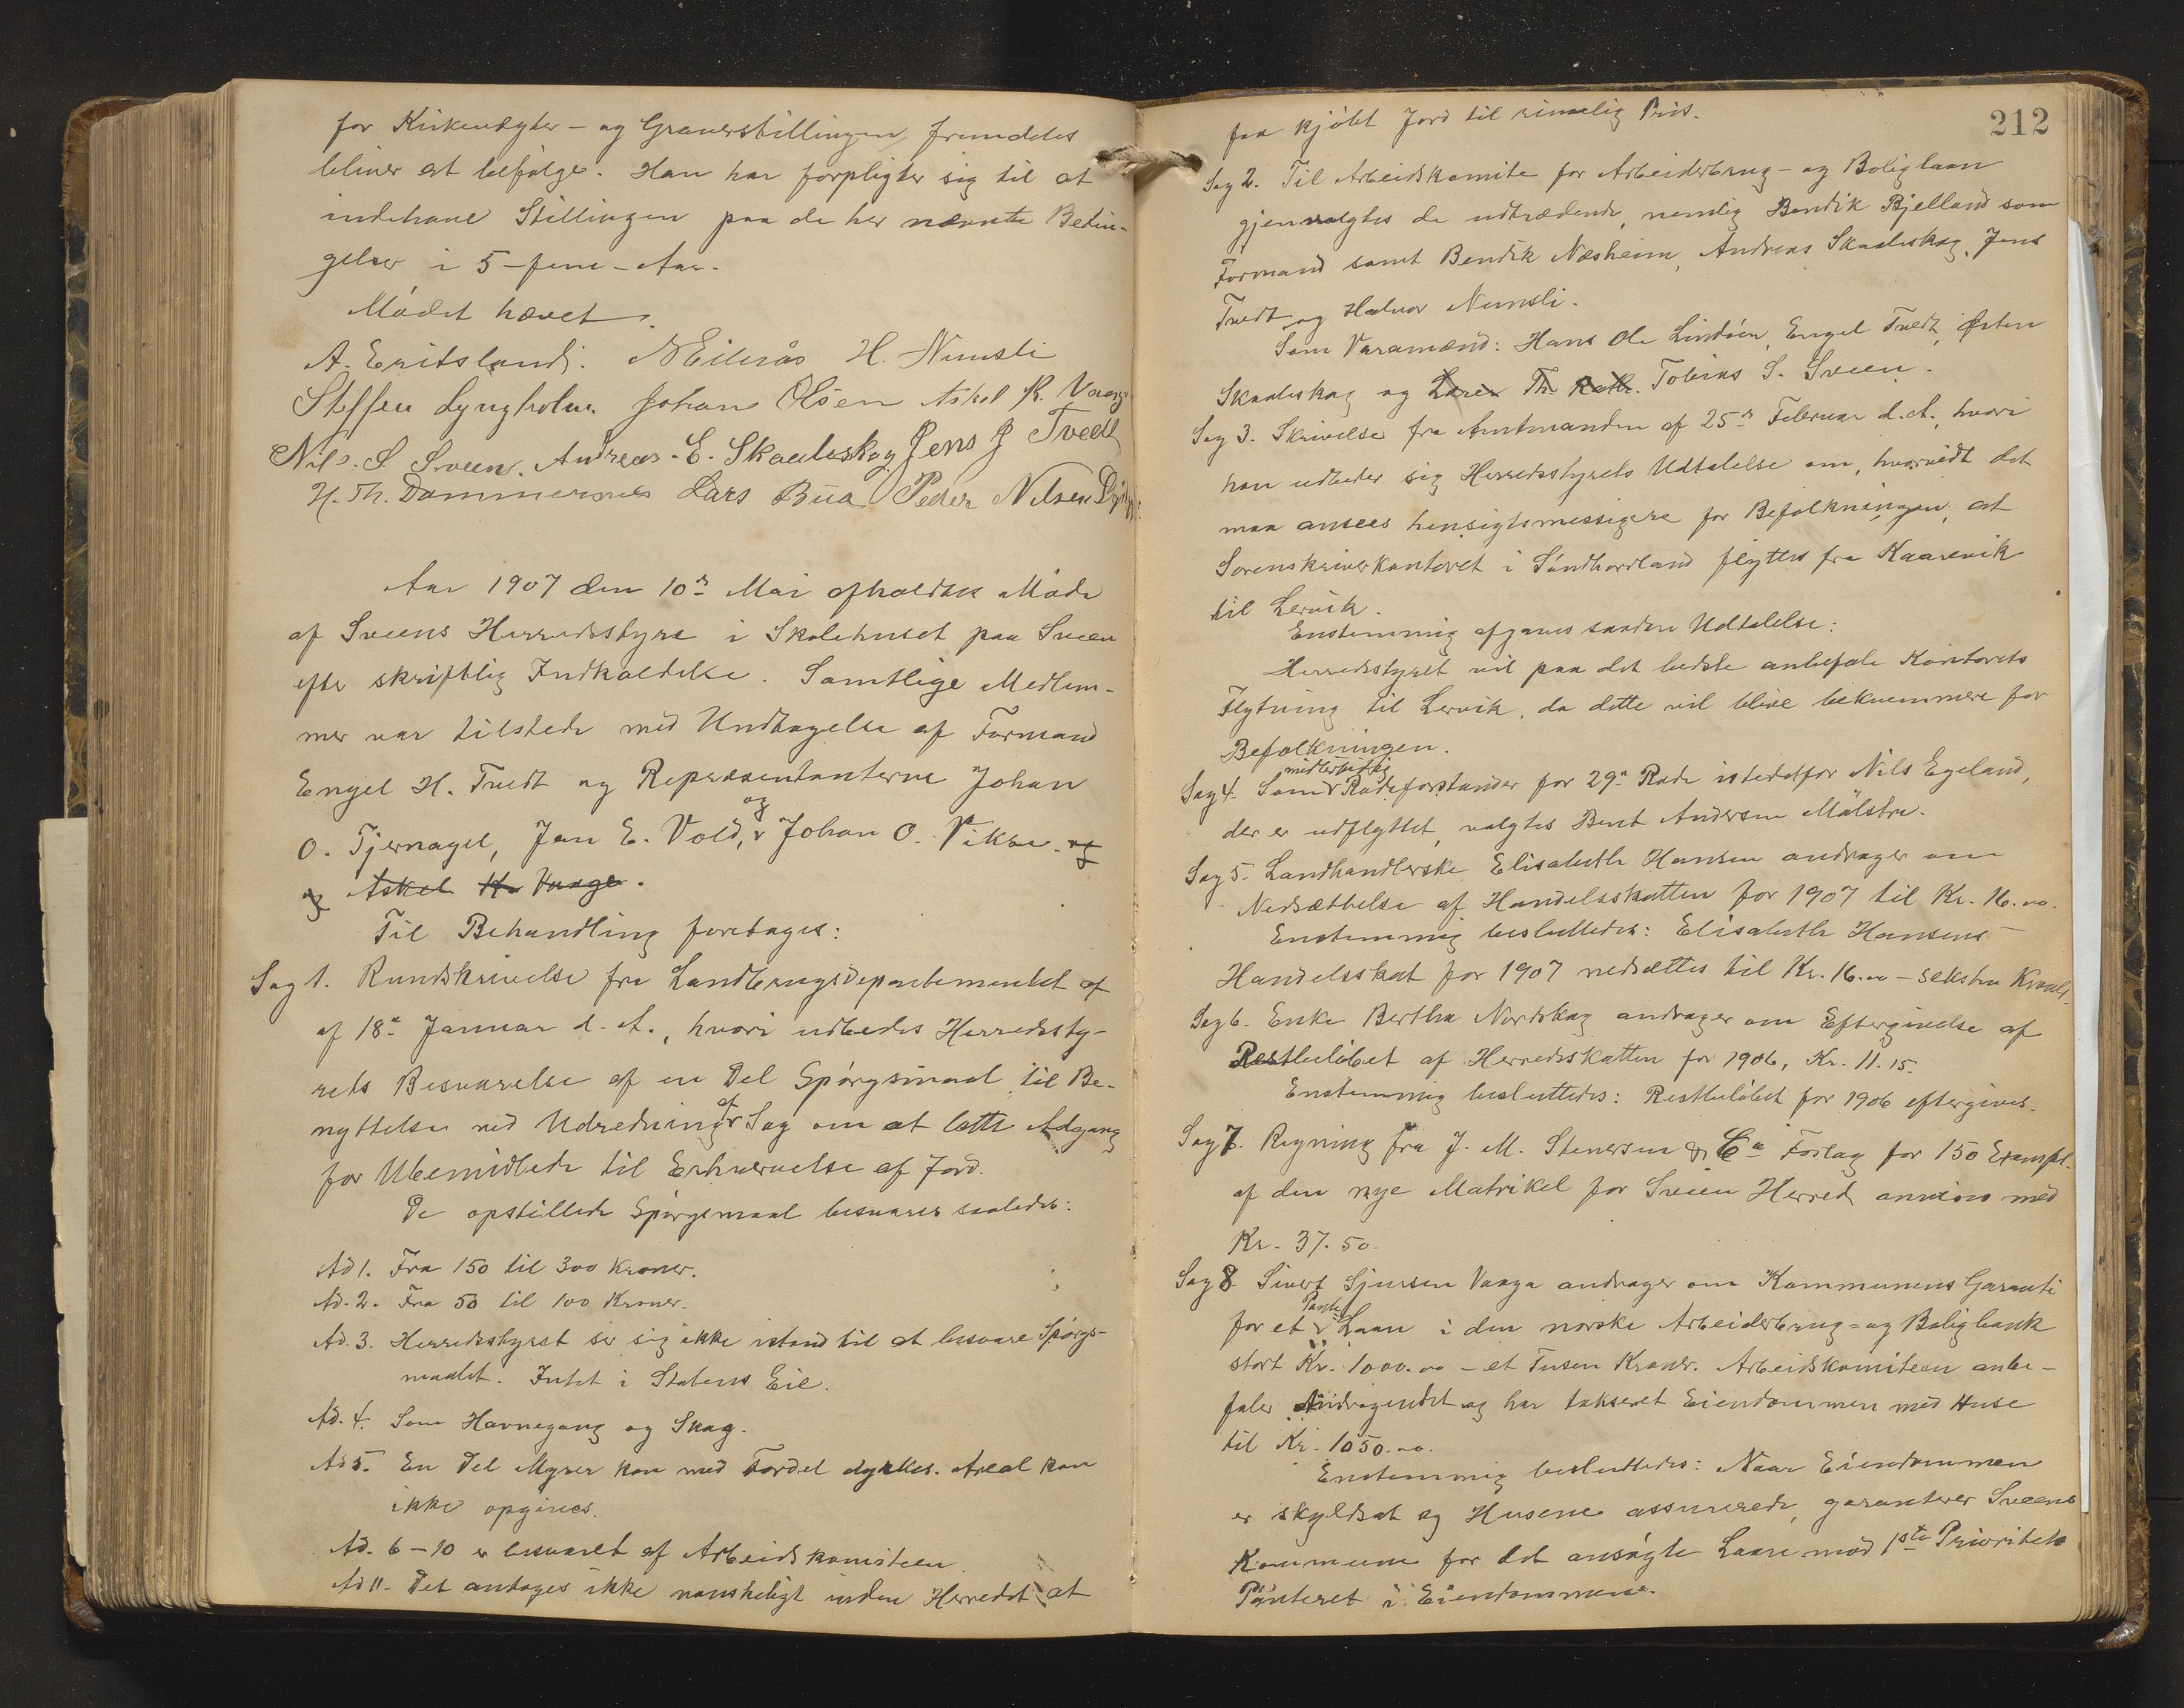 for Kirkevægter- og Graverstillingen fremdeles
bliver at befølge. Han har forpligtet sig til at
indehave Stillingen paa de her nævnte Betin-
gelser i 5 - fem - Aar.
Mødet hævet.
A. Eritsland. N Eilerås H. Numsli
Steffen Lyngholm. Johan Olsen Askel K. Vaage
Nils. S. Sveen. Andreas. E. Skaaleskog Jens J Tvedt
H. Th. Dommersnes Lars Bua Peder Nilsen
Aar 1907 den 10de Mai afholdtes Møde
af Sveens Herredsstyre i Skolehuset paa Sveen
efter skriftlig Indkaldelse. Samtlige Medlem-
mer var tilstede med Undtagelse af Formand
Engel H. Tvedt og Repræsentanterne Johan
O. Tjernagel, Jan E. Vold, og Johan O. Vikse. og
og Askel K. Vaage.
Til Behandling foretages:
Sag 1. Rundskrivelse fra Landbrugsdepartementet af
af 18de Januar d. A., hvori udbedes Herredssty-
rets Besvarelse af en Del Spørgsmaal til Be-
nyttelse ved Udredning af Sag om at lette Adgang
for Ubemidlede til Erhvervelse af Jord.
De opstillede Spørgsmaal besvares saaledes:
Ad 1. Fra 150 til 300 Kroner.
Ad. 2. Fra 50 til 100 Kroner.
Ad. 3. Herredsstyret ser sig ikke istand til at besvare Spørgs-
maalet. Intet i Statens Eie.
Ad. 4. Som Havnegang og Skog.
Ad 5. En Del Myrer kan med Fordel dyrkes. Areal kan
ikke opgives.
Ad. 6-10 er besvaret af Arbeidskomiteen.
Ad 11. Det antages ikke vanskeligt inden Herredet at
212
faa kjøbt Jord til rimelig Pris.
Sag 2. Til Arbeidskomite for Arbeiderbrug- og Boliglaan
gjenvalgtes de udtrædende, nemlig Bendik Bjelland som
Formand samt Bendik Næsheim, Andreas Skaaleskog, Jens
Tvedt og Halvor Numsli.
Som Varamænd: Hans Ole Lindøen, Engel Tvedt, Østen
Skaaleskog og Th. Tobias S. Sveen.
Sag 3. Skrivelse fra Amtmanden af 25de Februar d. A., hvori
han udbeder sig Herredsstyrets Udtalelse om, hvorvidt det
maa ansees hensigtsmessigere for Befolkningen, at
Sorenskriverkontoret i Søndhordland flyttes fra Kaarevik
til Lervik.
Enstemmig afgaves saadan Udtalelse:
Herredsstyret vil paa det bedste anbefale Kontorets
Flytning til Lervik, da dette vil blive bekvemmere for
Befolkningen.
Sag 4. Som midlertidig Rodeforstander for 29de Rode istedetfor Nils Egeland,
der er udflyttet, valgtes Bent Andersen Mølstre.
Sag 5. Landhandlerske Elisabeth Hansen andrager om
Nedsættelse af Handelsskatten for 1907 til Kr. 16.00.
Enstemmig besluttedes: Elisabeth Hansens
Handelsskat for 1907 nedsættes til Kr. 16.00 - seksten Kroner.
Sag 6. Enke Bertha Nordskog andrager om Eftergivelse af
Restbeløbet af Herredsskatten for 1906, Kr. 11.15.
Enstemmig besluttedes: Restbeløbet for 1906 eftergives.
Sag 7. Regning fra J. M. Stenersen & Co Forlag for 150 Exempl.
af den nye Matrikel for Sveen Herred anvises med
Kr. 37.50.
Sag 8. Sivert Sjursen Vaaga andrager om Kommunens Garanti
for et Pante Laan i den norske Arbeiderbrug- og Boligbank
stort Kr. 1000.00 - et Tusen Kroner. Arbeidskomiteen anbe-
faler Andragendet og har takseret Eiendommen med Huse
til Kr. 1050.00.
Enstemmig besluttedes: Naar Eiendommen
er skyldsat og Husene assurerede, garanterer Sveens
Kommune for det ansøgte Laan mod 1ste Prioritets
Panteret i Eiendommen.